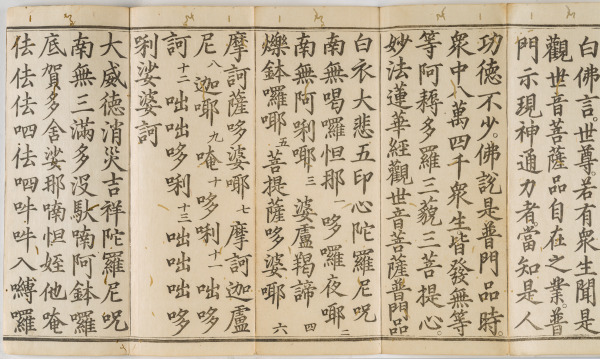 白佛言。世尊。若有衆生聞是
觀世音菩薩品自在之業。普
門示現神通力者。當知是人
功德不少。佛說是普門品時。
衆中八萬四千衆生皆發無等
等阿耨多羅三藐三菩提心。
妙法蓮華經觀世音菩薩普門品
白衣大悲五印心陀羅尼呪
南無喝囉怛那一哆囉夜耶二
南無阿唎耶三婆盧羯諦四
爍鉢囉耶五菩提薩哆婆耶六
摩訶薩哆婆耶七摩訶迦盧
尼八迦耶九唵十哆唎十一咄哆
訶十二咄咄哆唎十三咄咄咄哆
唎娑婆訶
大威德消災吉祥陀羅尼呪
南無三滿多沒馱喃阿鉢囉
底賀多舍娑那喃怛姪他唵
佉佉佉呬佉呬吽吽入嚩囉